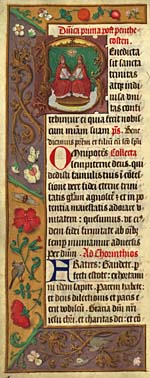 Dñica prima post penthe
costen.
Benedicta
sit sancta
trinitas
atqz indi
uisa uni
tas confi
tebimur ei quia fecit nobis
cum miam suam ps̃. Bene
dicamus
Omnipotẽs Collecta
sempiterne deus, qui
dedisti famulis tuis ĩ cõfes
sione vere fidei eterne trini
tatis gl̃iam agnosce et in po
tentia maiestatis adorare v
nitatem: quesumus. vt eius
dem fidei firmitate ab oĩbus
semp muniamur aduersis
per dñm. Ad Chorinthios
Fratres: Gaudete. p
fecti estote: exhortami
ni idem sapite. Pacem habete:
et deus dilectionis et pacis e
rit vobiscũ. Gracia dñi nr̃i
et charitas dei: et cõ